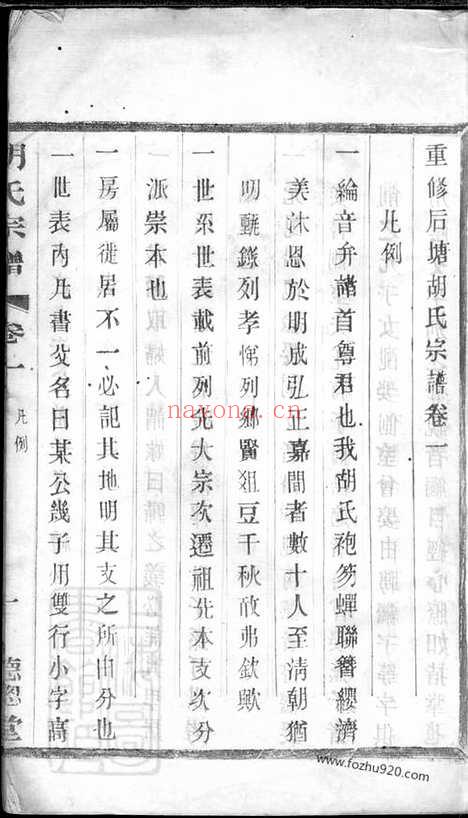 重修后塘胡氏宗譜卷一
凡例
一綸音弁譜首尊君也我胡氏袍笏蟬聯簪纓濟
美沐恩於明成弘正嘉間者數十人至清朝猶
叨甄錄列孝悌列鄉賢俎豆千秋敢弗欽歟
一世系世表載前列先大宗次遷祖先本支次分
派崇本也
一房屬徙居不一必記其地明其支之所由分也
一世表內凡書父名曰某公幾子用雙行小字高
胡氏宗譜
卷一
凡例
一
德聰堂
nayona.cn
www.fozhu920.com